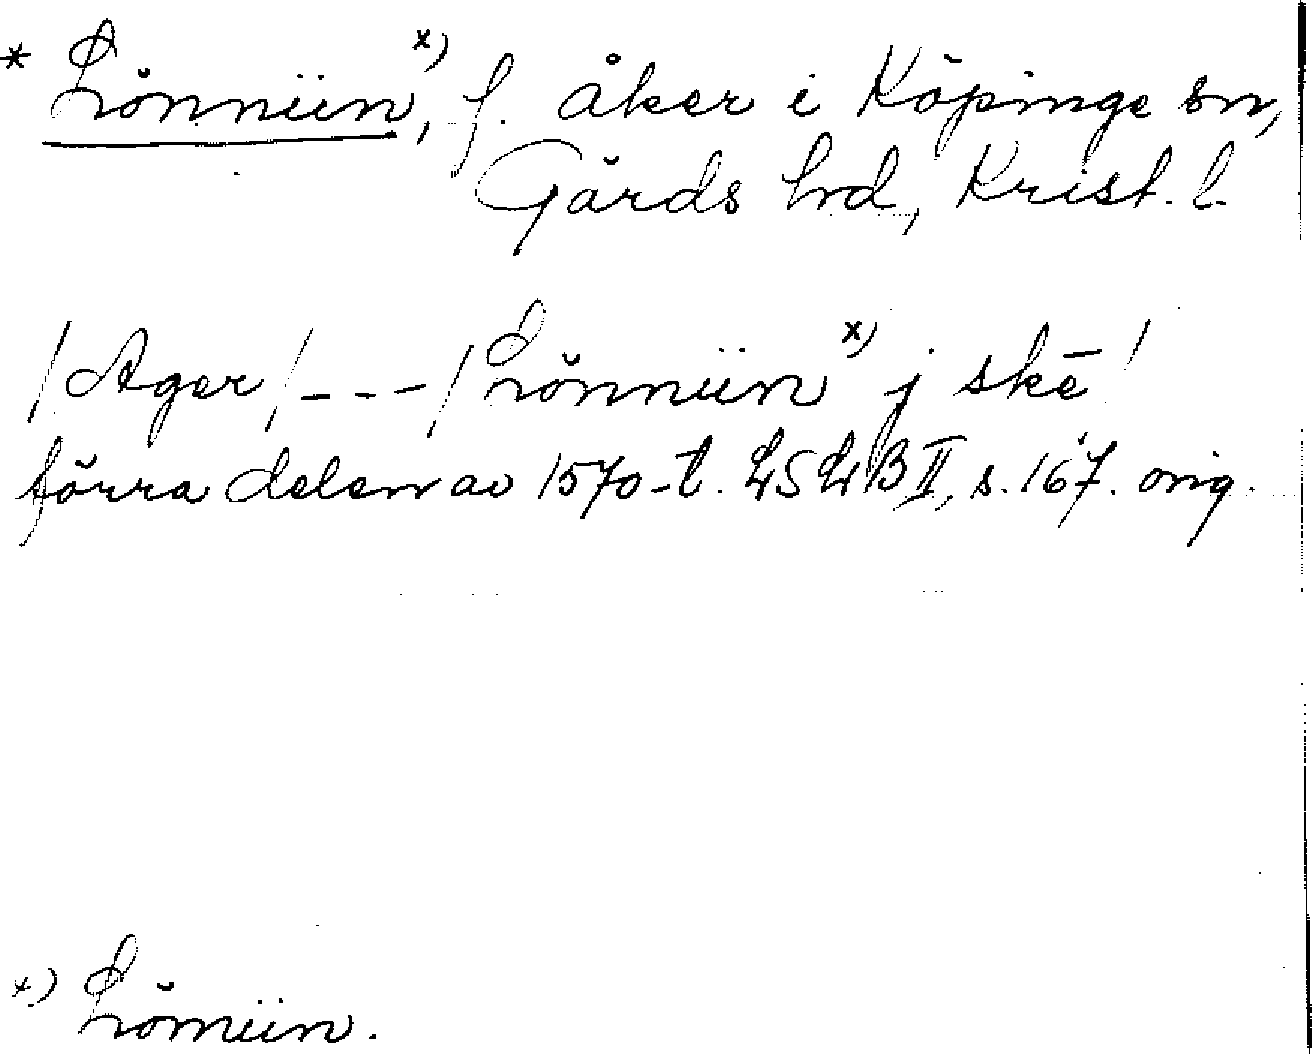 * Lönniin x), f. åker i Köpinge sn,
Gärds hd, Krist. l.
/Ager/---/Lönniin x) j skē/
förra delen av 1570-t. LSLB II, s. 167. orig.
x) Lömiin.